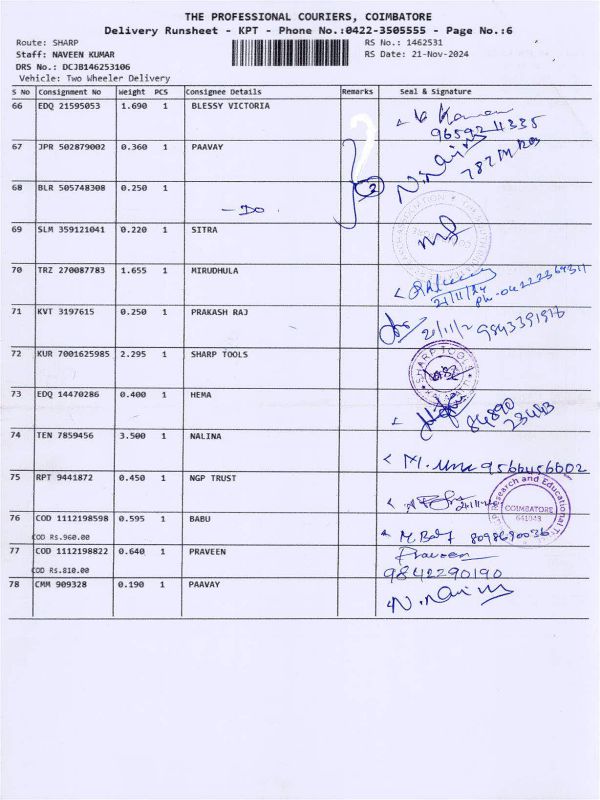 THE PROFESSIONAL COURIERS, COIMBATORE
Delivery Runsheet - KPT - Phone No.:0422-3505555 - Page No.:6
Route: SHARP
RS No.: 1462531
Staff: NAVEEN KUMAR
RS Date: 21-Nov-2024
DRS No.: DCJB146253106
Vehicle: Two Wheeler Delivery
S No Consignment No Weight PCS Consignee Details Remarks Seal & Signature
66 EDQ 21595053 1.690 1 BLESSY VICTORIA
67 JPR 502879002 0.360 1 PAAVAY
68 BLR 505748308 0.250 1
- DO 2
69 SLM 359121041 0.220 1 SITRA
70 TRZ 270087783 1.655 1 MIRUDHULA
21/11/24
71 KVT 3197615 0.250 1 PRAKASH RAJ
72 KUR 7001625985 2.295 1 SHARP TOOLS
SHARP TOOLS
73 EDQ 14470286 0.400 1 HEMA
84890
23443
74 TEN 7859456 3.500 1 NALINA
9566456602
75 RPT 9441872 0.450 1 NGP TRUST
Research and Educational
COIMBATORE
641048
76 COD 1112198598 0.595 1 BABU
COD Rs.960.00
8098690036
77 COD 1112198822 0.640 1 PRAVEEN
Praveen
COD Rs.810.00
9842290190
78 CMM 909328 0.190 1 PAAVAY